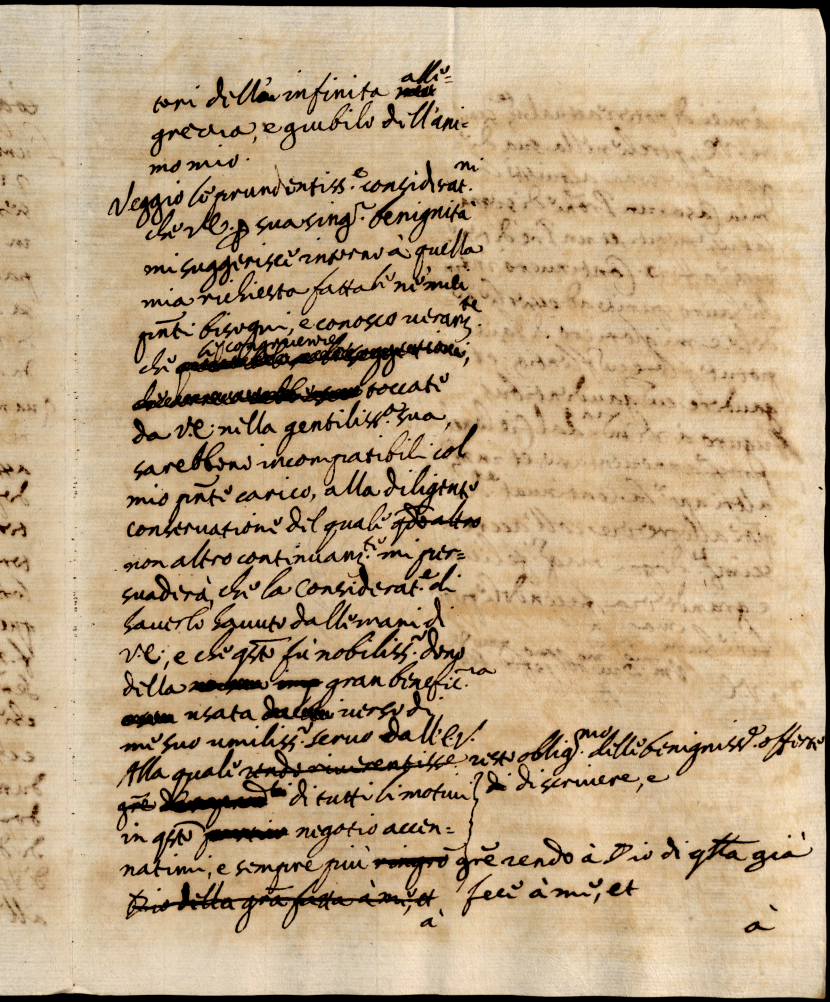 tori dell'infinita alle=
grezza, e giubilo dell'ani=
mo mio.
Veggio le prudentiss.e considerat.ni
che V.E. p sua sing.r benignità
mi suggerisce intorno à quella
mia richiesta fattale ne' miei
pnti bisogni, e conosco veram.te
che le congruenze
toccate
da V.E. nella gentiliss.a sua,
sarebbono incompatibili col
mio pnte carico, alla diligente
conservatione del quale
non altro continuam.te mi per=
suaderà, che la Considerat.e di
haverlo havuto dalle mani di
V.E., e che qsto fù nobiliss.o dono
della gran benefic.a
usata verso di
me suo umiliss.o servo dall'E.V.
Alla quale rendo riverentisse resto oblig.mo delle benigniss.e offerte
gre di tutti li motivi di scrivere, e
in qsto negotio accen=
natimi, e sempre più gre rendo à Dio di qlla già
Dio della gra fatta à me, et fece à me, et
à à